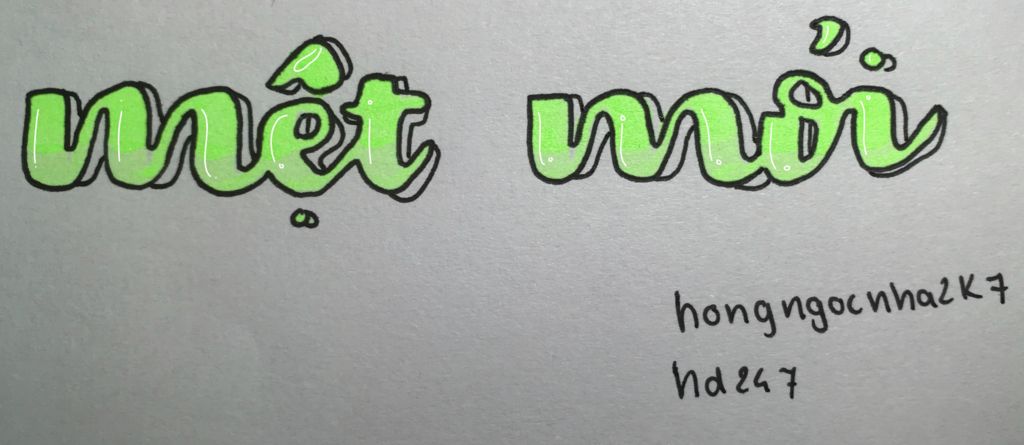 mệt mỏi
hongngocnha2k7
hd247